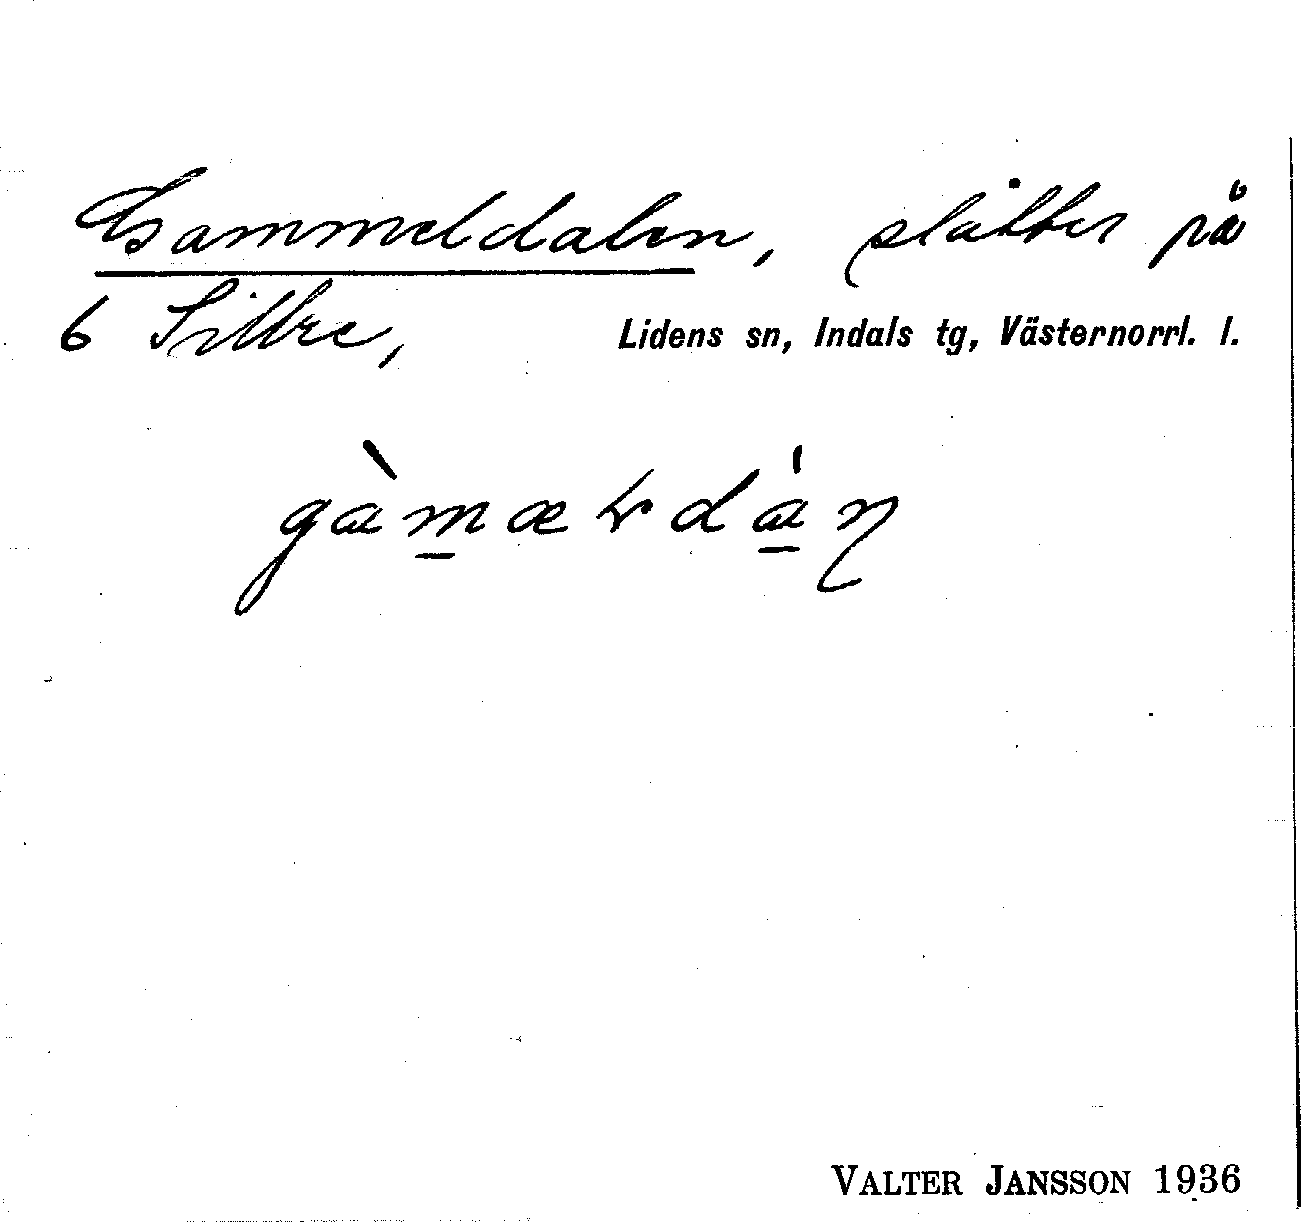 Gammeldalen, slåtter på
6 Sillre,
Lidens sn, Indals tg, Västernorrl. l.
VALTER JANSSON 1936